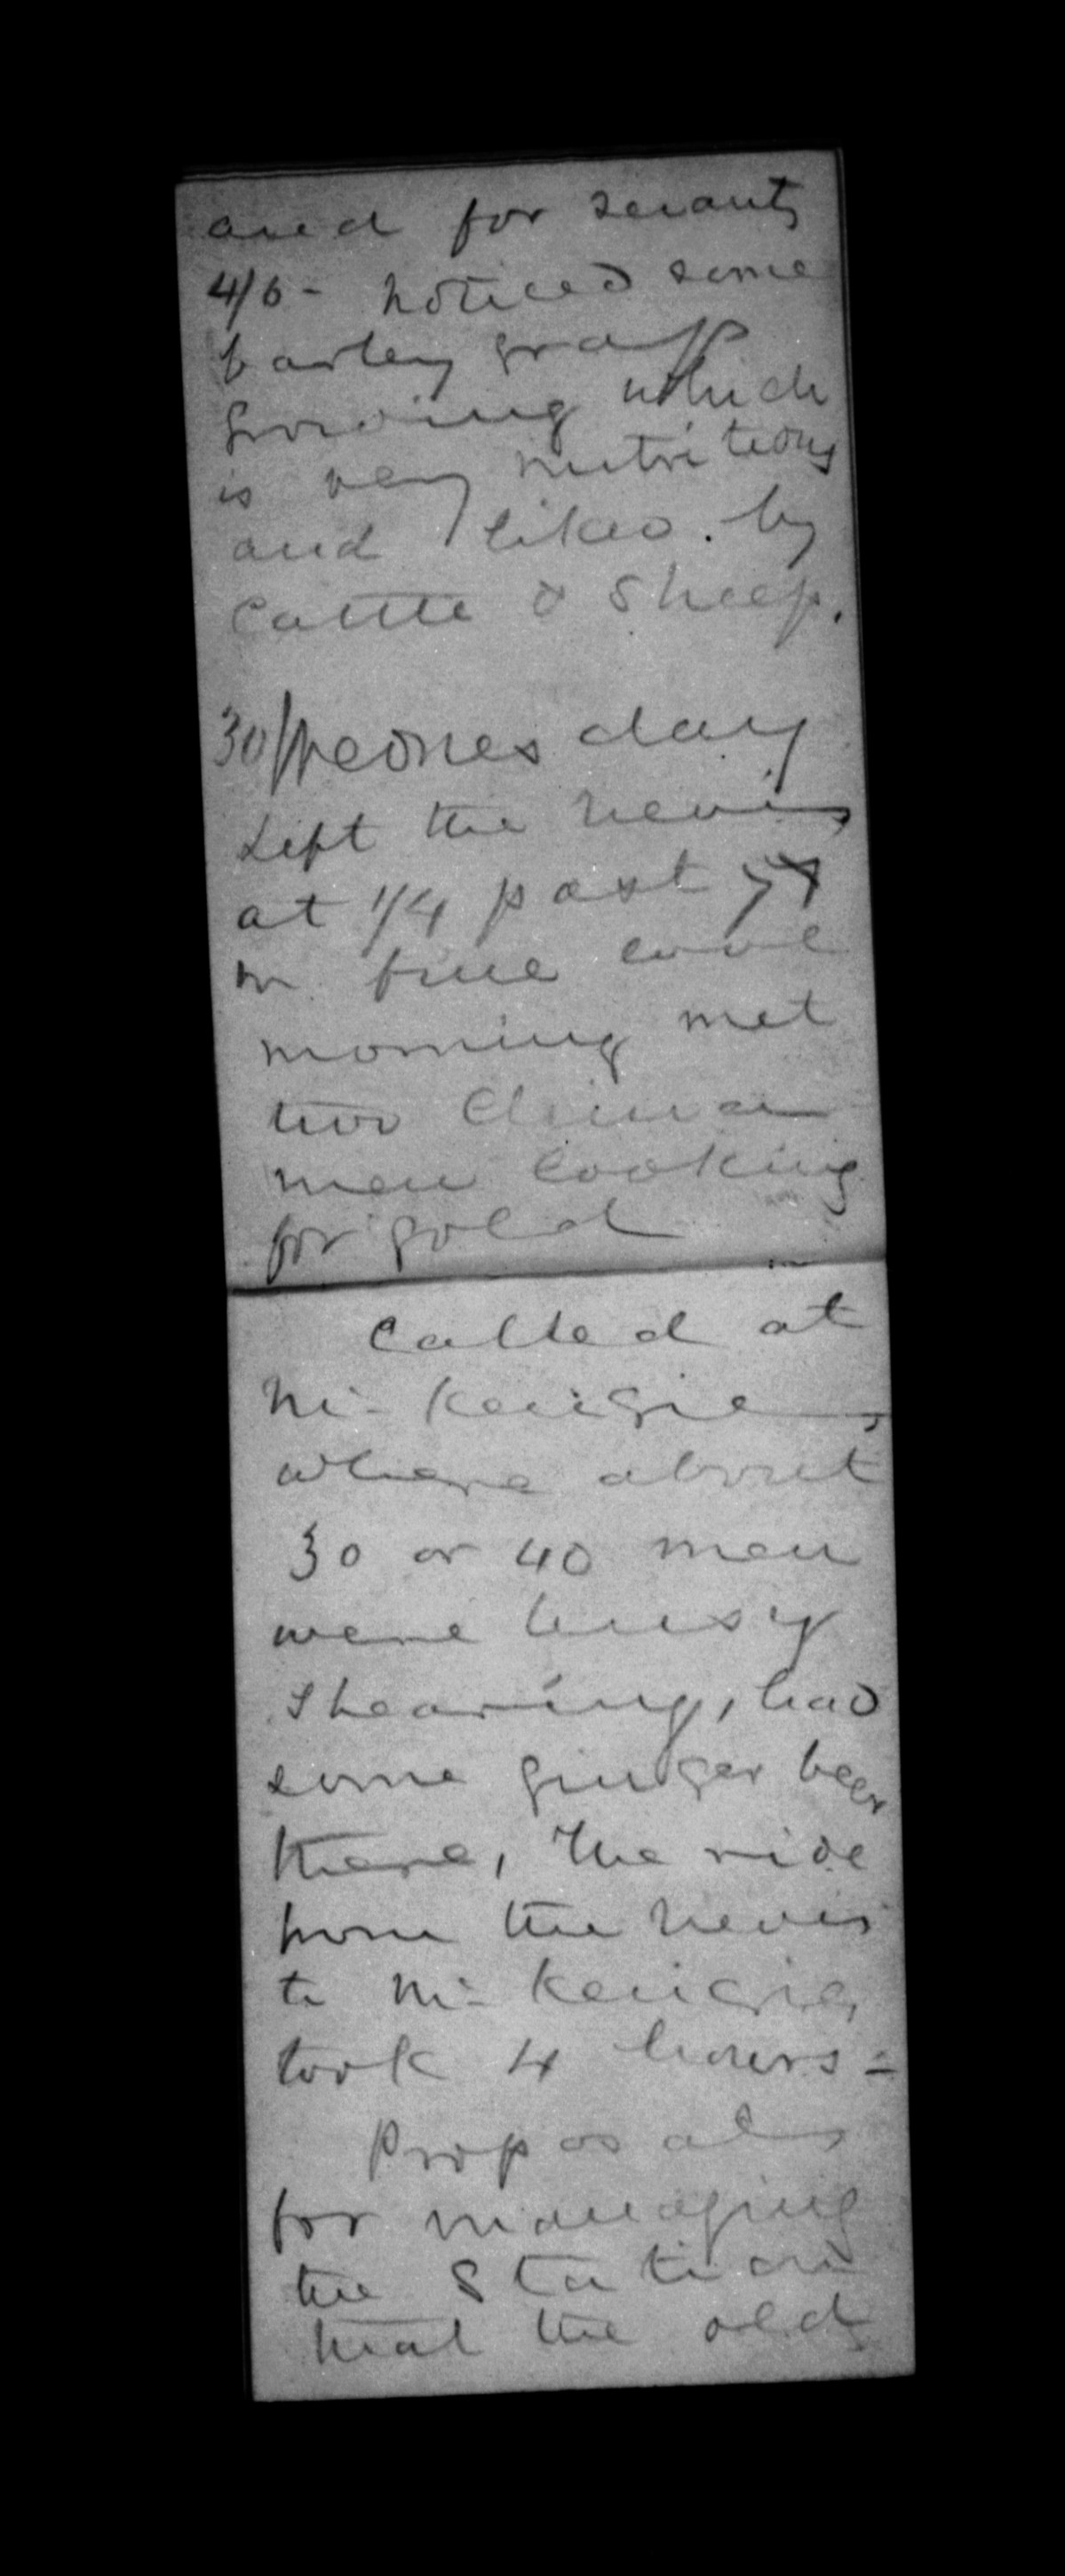 and for servants
4/6 - noticed some
barley grass
growing which
is very nutritious
and liked by
cattle & sheep.
30/Wednesday
Left the nevis
at 1/4 past 7
in fine cool
morning met
two China
men looking
for gold
Called at
Mc Kenzies
where about
30 or 40 men
were busy
shearing, had
some ginger beer
there, The ride
from the nevis
to Mc Kenzies
took 4 hours -
Proposals
for managing
the Station
that the old